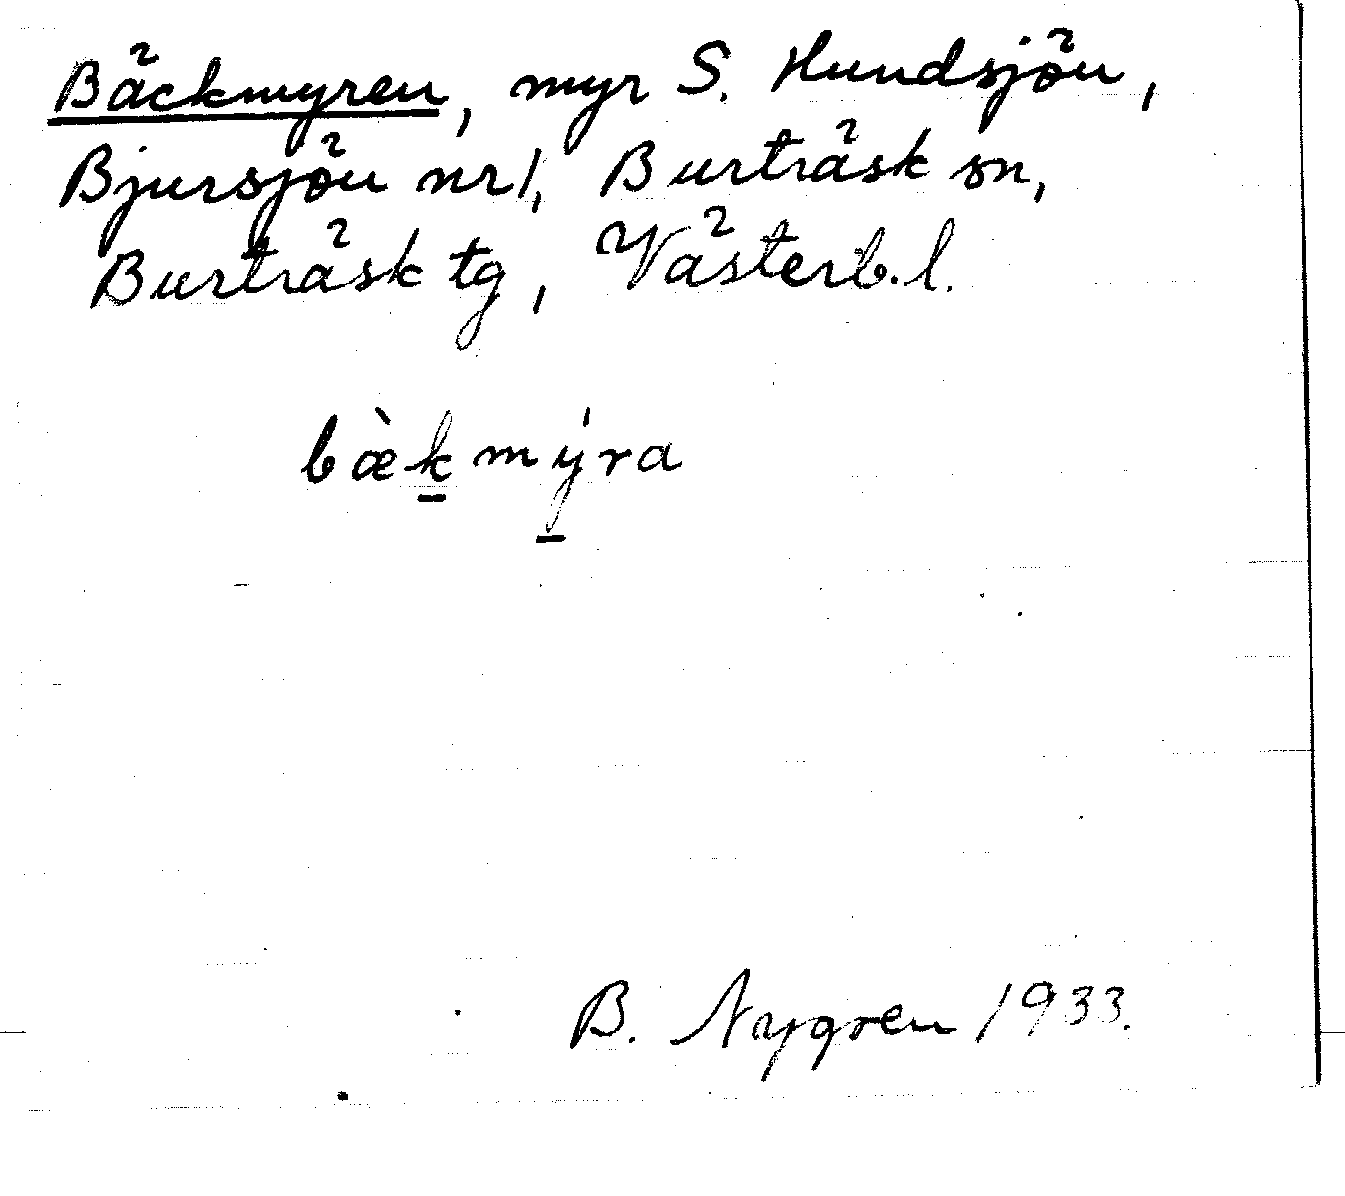 Bäckmyren, myr S. Hundsjön,
Bjursjön nr 1, Burträsk sn,
Burträsk tg, Västerb. l.
bæ̀k̲mý̲ra
B. Nygren 1933.